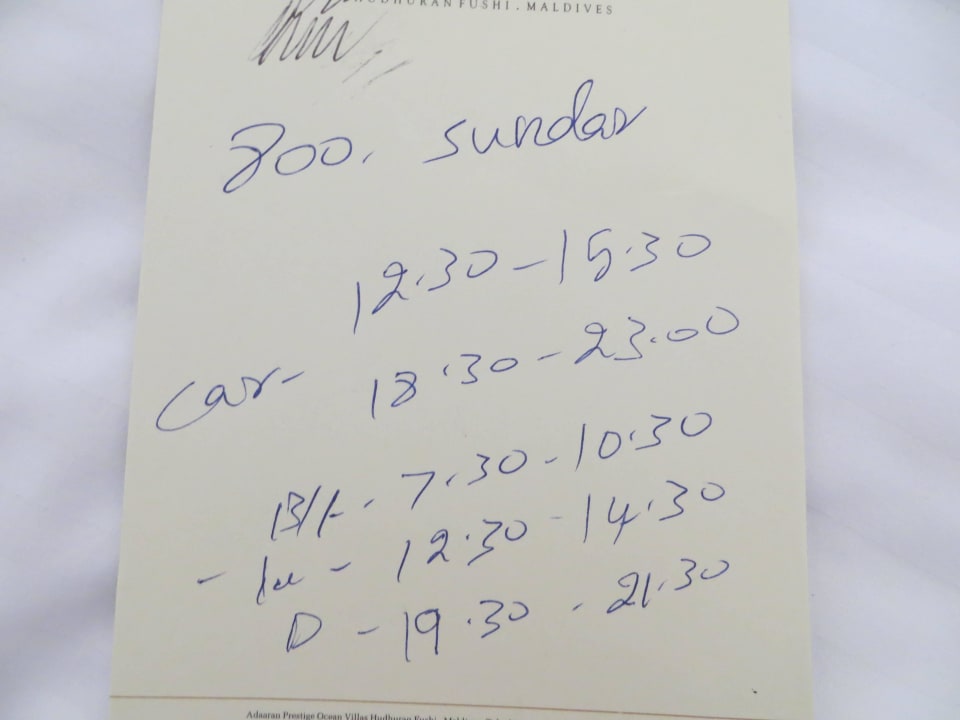 HUDHURAN FUSHI . MALDIVES
800. sundar
12.30 - 15.30
Car- 18.30 - 23.00
B/f - 7.30 - 10.30
- Lu - 12.30 - 14.30
D - 19.30 - 21.30
Adaaran Prestige Ocean Villas Hudhuran Fushi